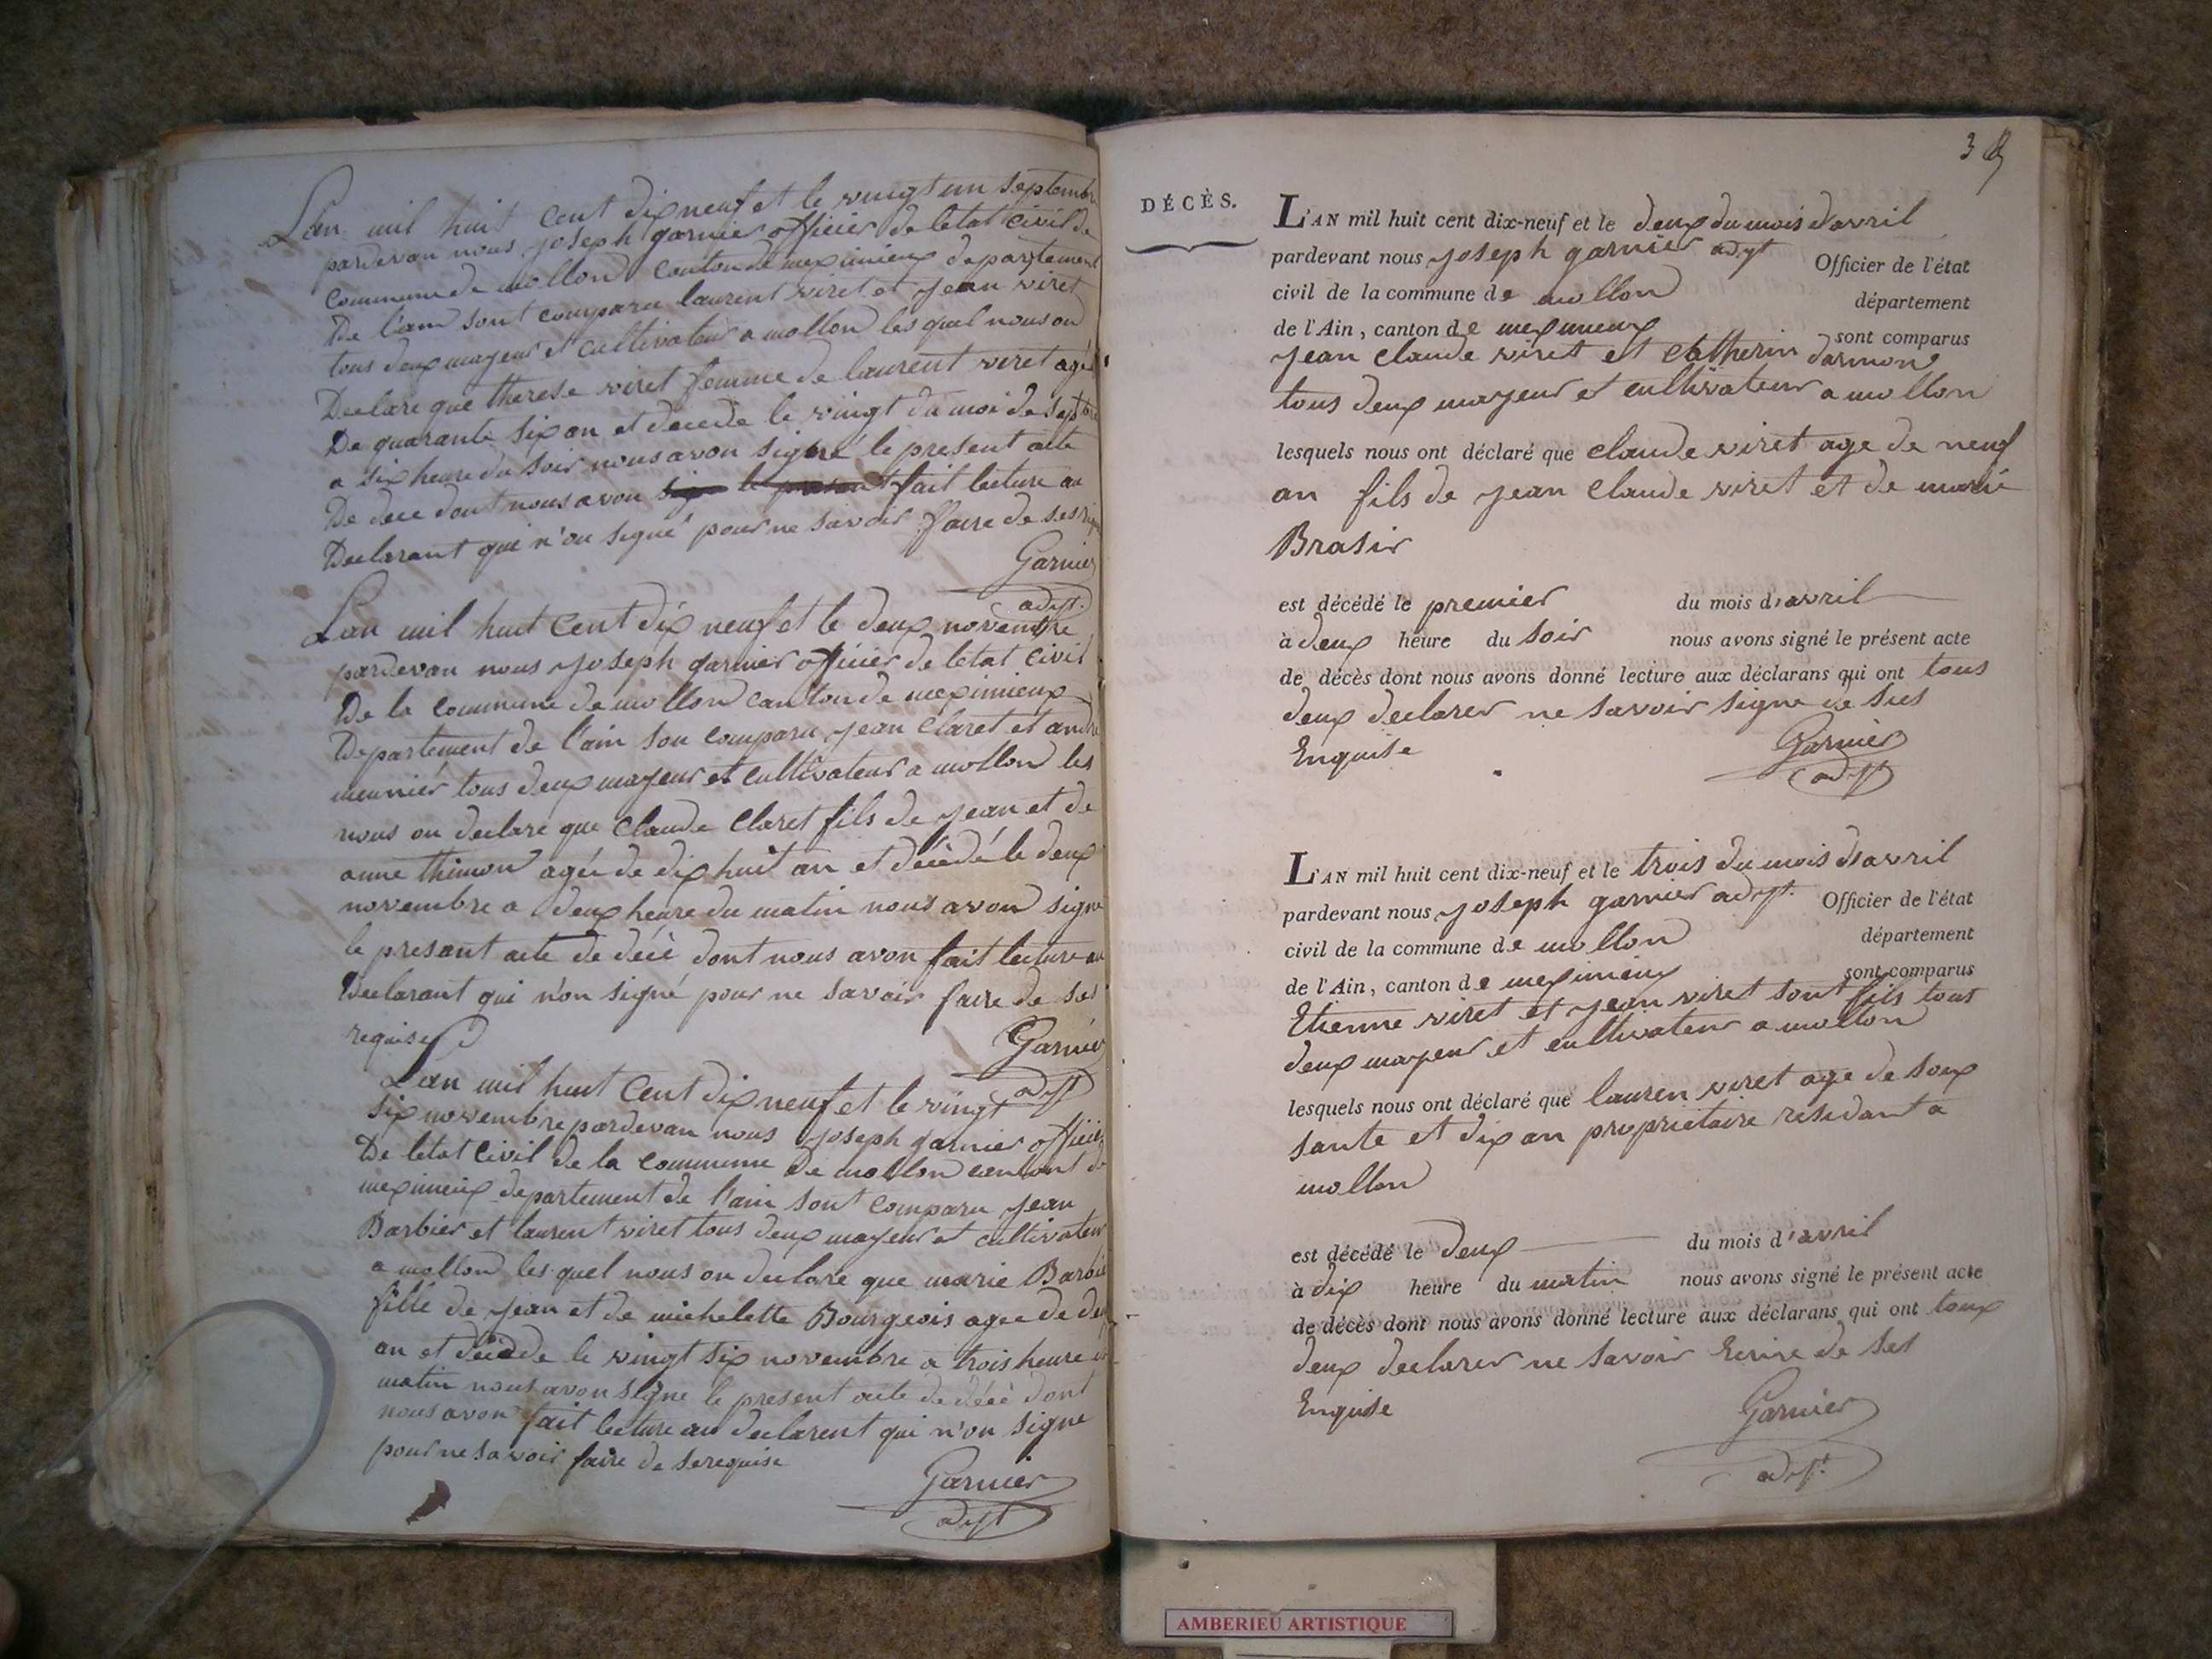 Lan mil huit cent dix neuf et le vingt un septembre
pardevan nous joseph garnier officier de letat civil de
commune de mollon canton de meximieux departement
De l'ain sont comparu laurent viret et jean viret
tous deux mayeur et cultivateur a mollon les quel nous on
Declare que therese viret femme de laurent viret agée
De quarante six an et decede le vingt du moi de septbre
a six heure du soir nous avon signé le present acte
De dece dont nous avon fait lecture au
Declarant qui n'on signé pour ne savoir faire de ses requi
Garnier
adjt.
Lan mil huit cent dix neuf et le deux novembre
pardevan nous joseph garnier officier de letat civil
De la commune de mollon canton de meximieux
Departement de l'ain son comparu jean Claret et andre
meunier tous deux mayeur et cultivateur a mollon les
nous on declare que Claude Claret fils de jean et de
anne thimon agée de dix huit an et décédé le deux
novembre a deux heure du matin nous avon signe
le presant acte de décè dont nous avon fait lecture au
Declarant qui n'on signé pour ne savoir faire de ses
requise
Garnier
adjt
Lan mil huit Cent dix neuf et le vingt
six novembre pardevan nous joseph garnier officier
De letat Civil de la Commune De mollon cantont de
meximieux departement de l'ain sont comparu jean
Barbier et laurent viret tous deux mayeur et cultivateur
a mollon les quel nous on declare que marie Barbie
fille de jean et de michelette Bourgeois agee de deu
an et décéde le vingt six novembre a trois heure du
matin nous avon signe le present acte de décè dont
nous avon fait lecture au declarent qui n'on signe
pour ne savoir faire de se requise
Garnier
adjt
3
DÉCÈS.
L'AN mil huit cent dix-neuf et le deux du mois d'avril
pardevant nous joseph garnier adjt Officier de l'état
civil de la commune de mollon département
de l'Ain, canton de meximieux sont comparus
jean claude viret et Catherin darmon
tous deux mayeur et cultivateur a mollon
lesquels nous ont déclaré que claude viret age de neuf
an fils de jean claude viret et de marie
Brasir
est décédé le premier du mois d'avril
à deux heure du soir nous avons signé le présent acte
de décès dont nous avons donné lecture aux déclarans qui ont tous
deux declarer ne savoir signe de sees
Enquise
Garnier
adjt
L'AN mil huit cent dix-neuf et le trois du mois d'avril
pardevant nous joseph garnier adjt. Officier de l'état
civil de la commune de mollon département
de l'Ain, canton de meximieux sont comparus
Etienne viret et jean viret sont fils tous
deux mayeur et cultivateur a mollon
lesquels nous ont déclaré que lauren viret age de soux
sante et dix an proprietaire residant a
mollon
est décédé le deux du mois d'avril
à dix heure du matin nous avons signé le présent acte
de décès dont nous avons donné lecture aux déclarans qui ont toux
deux declarer ne savoir Ecrire de ses
Enquise
Garnier
adjt.
AMBERIEU ARTISTIQUE